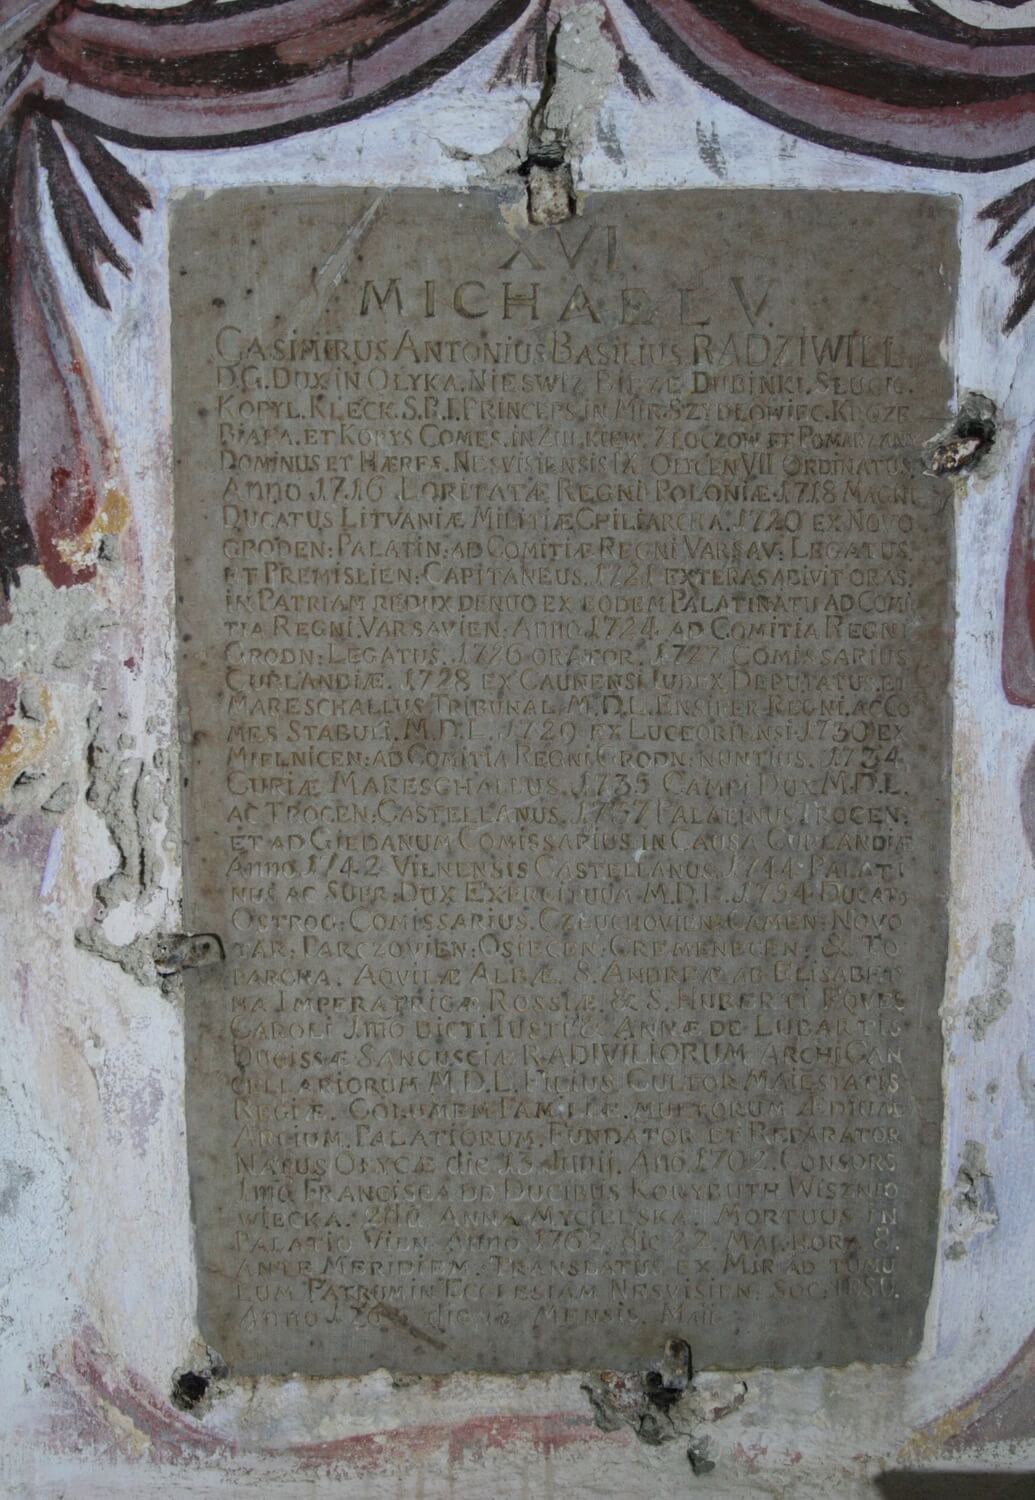 XVI
MICHAEL V.
CASIMIRUS ANTONIUS BASILIUS RADZIWILL
D.G. DUX IN OLYKA. NIESWIZ BIRZE DUBINKI. SLUCK.
KOPYL. KLECK. S.R.I. PRINCEPS. IN MIR. SZYDLOWIEC. KROZE
BIAŁA. ET KOPYS COMES. IN ZOLKIEW. ZŁOCZOW. ET POMARZANY
DOMINUS ET HÆRES. NESVISIENSIS IX OLYCEN VII ORDINATUS.
Anno 1716 LORITATÆ REGNI POLONIÆ. 1718 MAGNI
DUCATUS LITVANIÆ MILITIÆ CHILIARCHA. 1720 EX NOVO
GRODEN: PALATIN: AD COMITIÆ REGNI VARSAV: LEGATUS.
ET PREMISLIEN: CAPITANEUS. 1721 EXTERAS ADIVIT ORAS.
IN PATRIAM REDUX DENUO EX EODEM PALATINATU AD COMI
TIA REGNI. VARSAVIEN: Anno 1724 AD COMITIA REGNI
GRODN: LEGATUS. 1726 ORATOR. 1727 COMISSARIUS
CURLANDIÆ. 1728 EX CAUNENSI JUDEX DEPUTATUS. ET
MARESCHALLUS TRIBUNAL M.D.L. ENSIFER REGNI. AC CO
MES STABULI. M.D.L. 1729 EX LUCEORIENSI. 1730 EX
MIELNICEN: AD COMITIA REGNI GRODN: NUNTIUS. 1734
CURIÆ MARESCHALLUS. 1735 CAMPI DUX M.D.L.
AC TROCEN: CASTELLANUS. 1737 PALATINUS TROCEN:
ET AD GIEDANUM COMISSARIUS IN CAUSA CURLANDIÆ
Anno 1742 VILNENSIS CASTELLANUS. 1744 PALATI
NUS AC SUPR: DUX EXERCITUUM M.D.L. 1754 DUCAT:
OSTROG: COMISSARIUS. CZŁUCHOVIEN: CAMEN: NOVO
TAR: PARCZOVIEN: OSIECEN: CREMENECEN: & TO
PARCHA. AQVILÆ ALBÆ. S. ANDREÆ AB ELISABET
HA IMPERATRICÆ ROSSIÆ. & S. HUBERTI EQVES
CAROLI 1mo DICTI IUSTI & ANNÆ DE LUBARTIS
DUCISSÆ SANGUSCIÆ RADIVILIORUM ARCHI CAN
CELLARIORUM M.D.L. FILIUS. CULTOR MAIESTATIS
REGIÆ. COLUMEM FAMILIÆ. MULTORUM ÆDIUM
ARCIUM. PALATIORUM. FUNDATOR ET REPARATOR
NATUS OLYCÆ die 13 Junij. Ano 1702. CONSORS
1ma FRANCISCA DE DUCIBUS KORYBUTH WISZNIO
WIECKA. 2da ANNA MYCIELSKA. MORTUUS IN
PALATIO VILN. Anno 1762. die 22 MAI. HORA 8.
ANTE MERIDIEM. TRANSLATUS EX MIR AD TUMU
LUM PATRUM IN ECCLESIAM NESVISIEN: SOC: IESU.
Anno die MENSIS. Maii